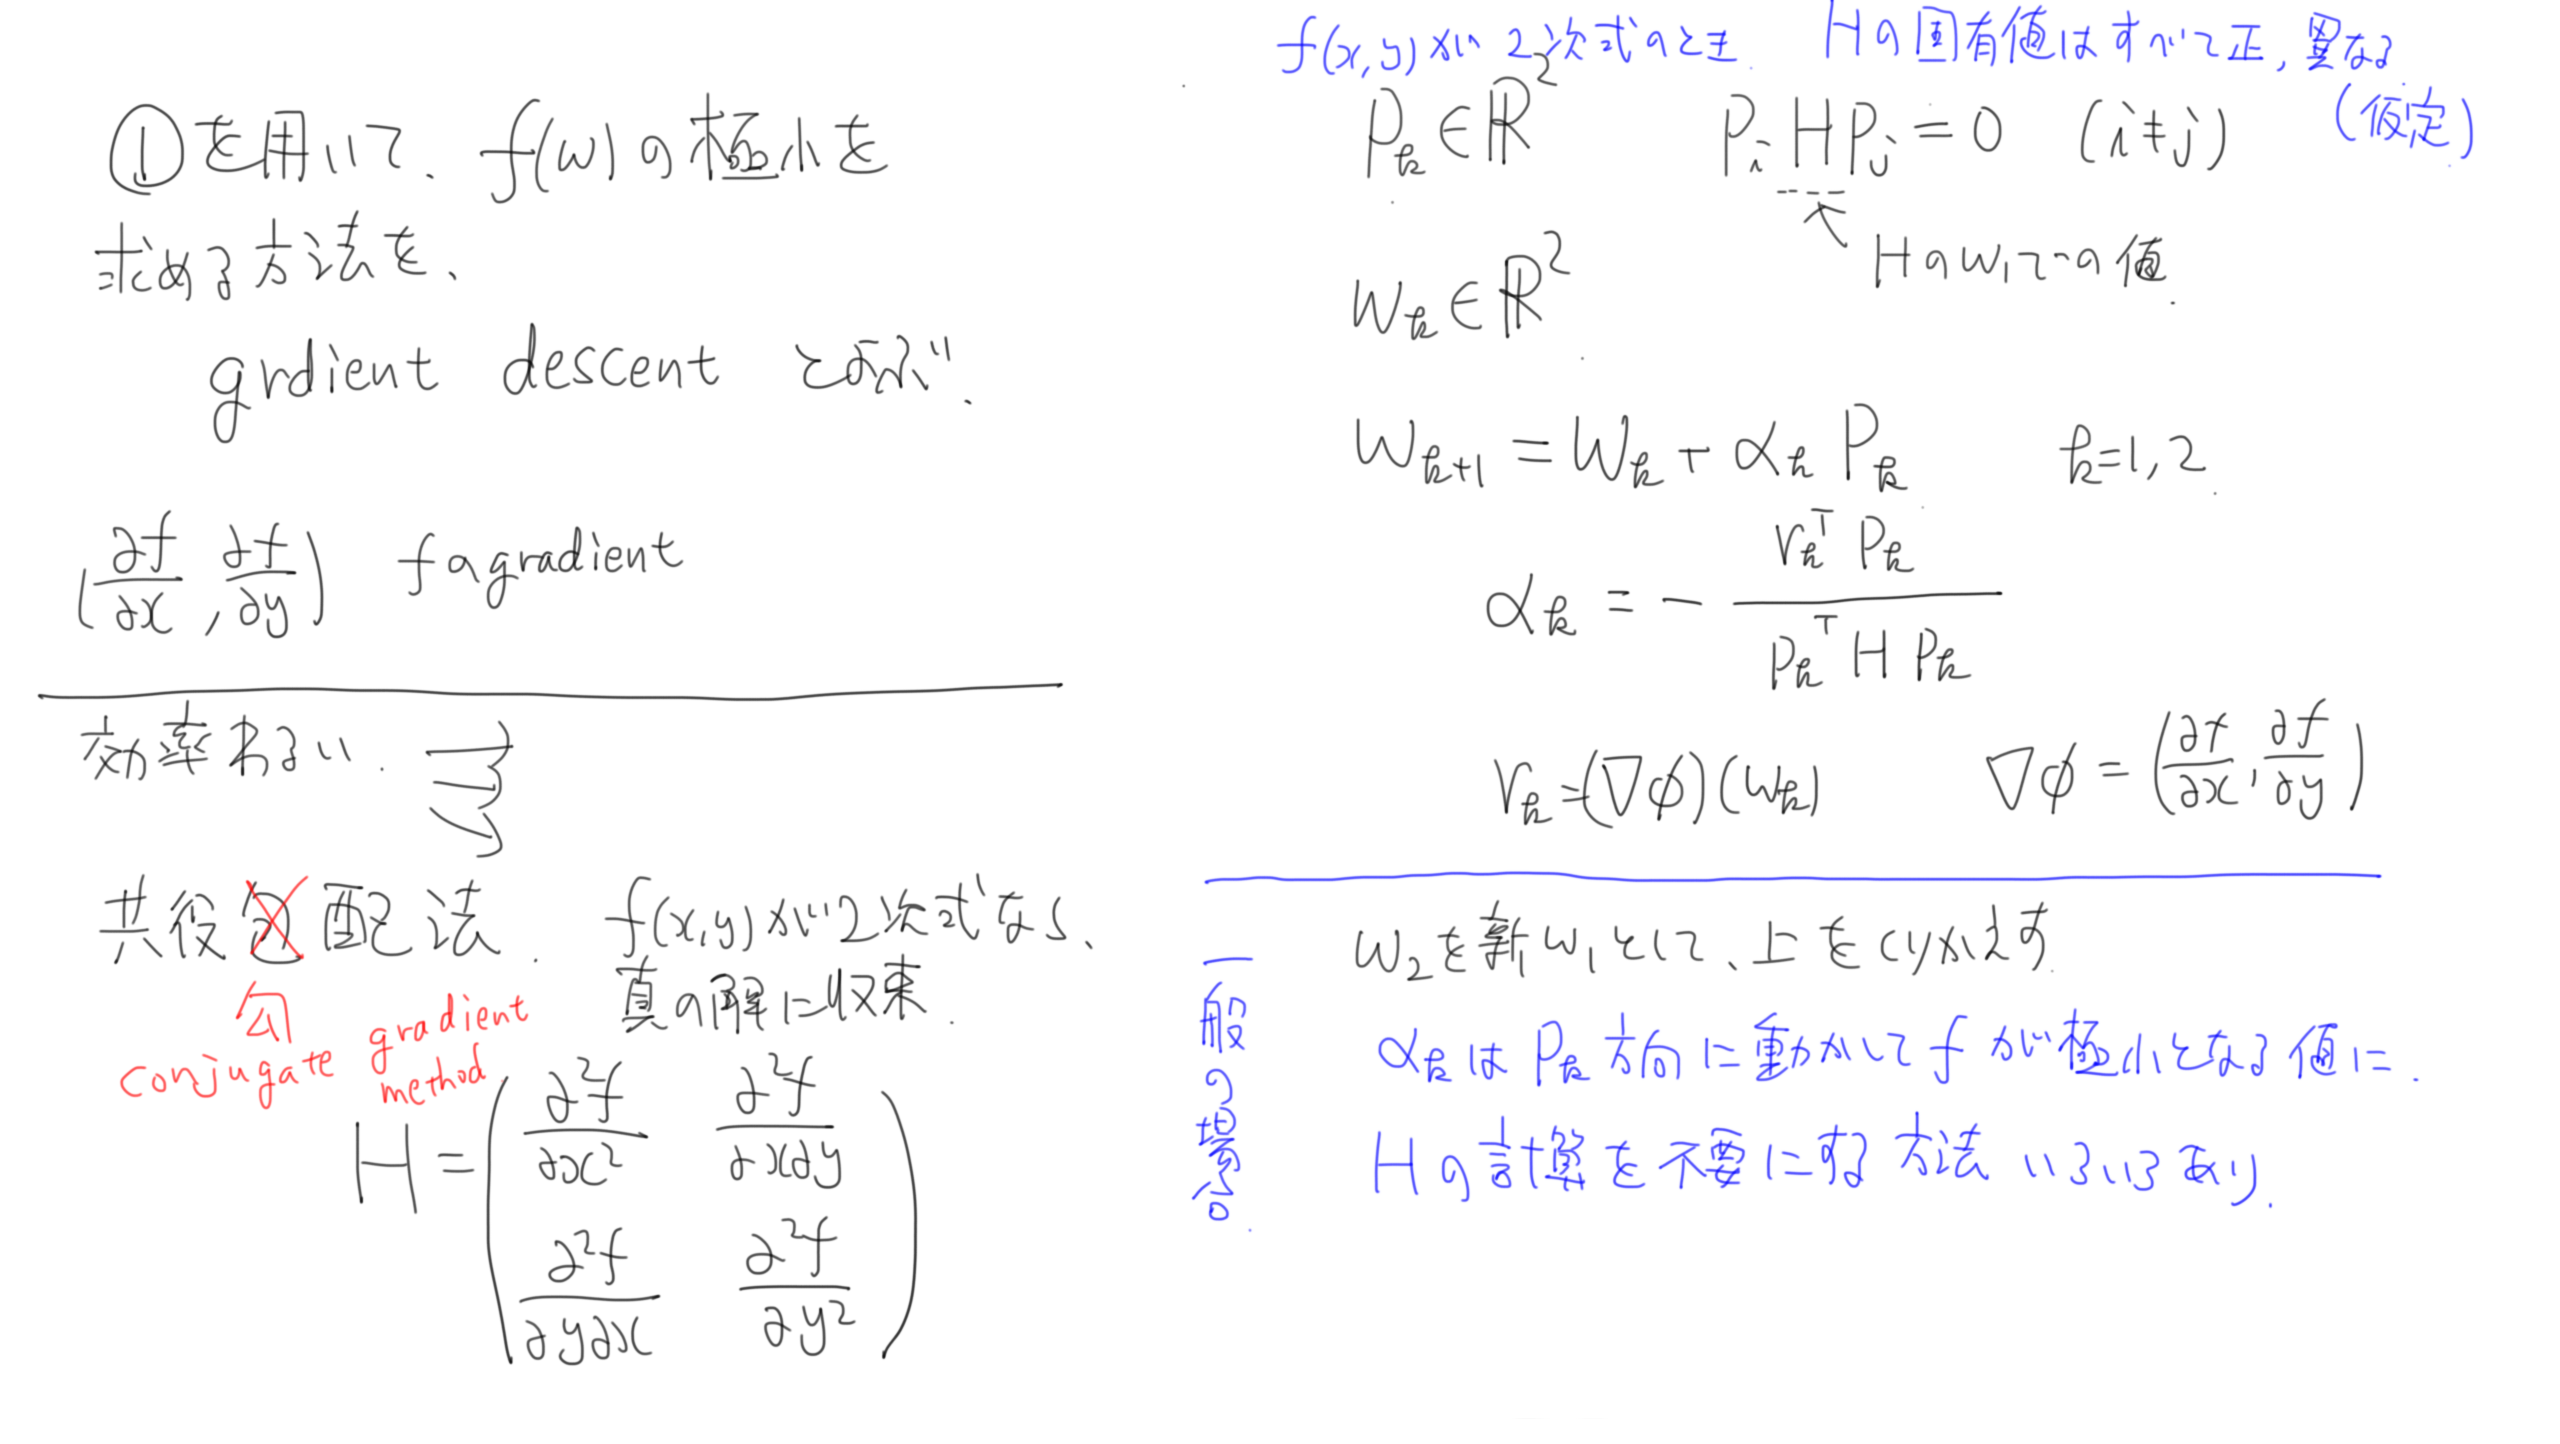 ①を用いて、f(w)の極小を
求める方法を、
grdient descent とよぶ.
(∂f/∂x, ∂f/∂y) fのgradient
効率わるい.
共役配法. f(x,y)が2次式なら、
勾 真の解に収束.
conjugate gradient
method.
H = (∂²f/∂x² ∂²f/∂x∂y
∂²f/∂y∂x ∂²f/∂y²)
f(x,y)が2次式のとき. Hの固有値はすべて正, 異なる.
(仮定)
P_k ∈ ℝ² P_i H P_j = 0 (i≠j)
Hのw₁での値.
w_k ∈ ℝ²
w_{k+1} = w_k + α_k P_k k=1,2.
α_k = − r_k^T P_k / P_k^T H P_k
r_k = (∇φ)(w_k) ∇φ = (∂f/∂x, ∂f/∂y)
一般の場合.
w₂を新w₁として、上をくりかえす.
α_kはP_k方向に動かしてfが極小となる値に.
Hの計算を不要にする方法いろいろあり.